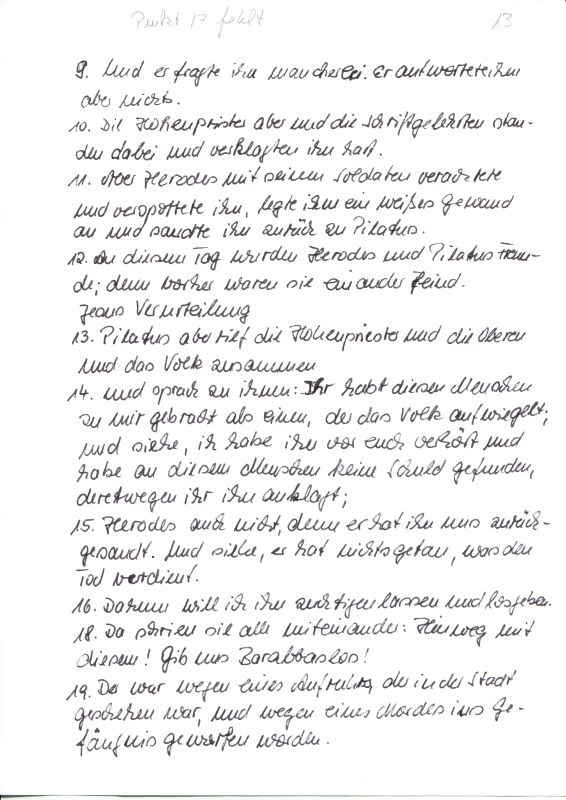 Punkt 17 fehlt 13
9. Und er fragte ihn mancherei. Er antwortete ihm
aber nichts.
10. Die Hohenpriester aber und die Schriftgelehrten stan-
den dabei und verklagten ihn hart.
11. Aber Herodes mit seinem Soldaten verachtete
und verspottete ihn, legte ihm ein weißes Gewand
an und sandte ihn zurück zu Pilatus.
12. An diesem Tag wurden Herodes und Pilatus Freun-
de; denn vorher waren sie einander Feind.
Jesus Verurteilung
13. Pilatus aber rief die Hohenpriester und die Oberen
und das Volk zusammen
14. und sprach zu ihnen: Ihr habt diesen Menschen
zu mir gebracht als einen, der das Volk aufwiegelt;
und siehe, ich habe ihn vor euch verhört und
habe an diesem Menschen keine Schuld gefunden,
deretwegen ihr ihn anklagt;
15. Herodes auch nicht, denn er hat ihn uns zurück-
gesandt. Und siehe, er hat nichts getan, was den
Tod verdient.
16. Darum will ich ihn züchtigen lassen und losgeben.
18. Da schrien sie alle miteinander: Hinweg mit
diesem! Gib uns Barabbas los!
19. Der war wegen eines Aufruhrs, der in der Stadt
geschehen war, und wegen eines Mordes ins Ge-
fängnis geworfen worden.